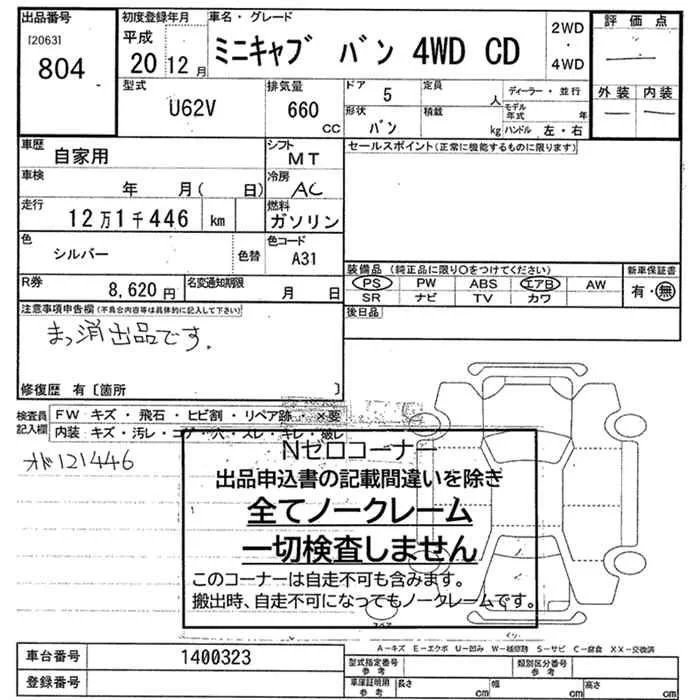 出品番号
[2063]
804
初度登録年月
平成
20 12 月
車名・グレード
ミニキャブ バン 4WD CD
2WD
・
4WD
評価点
外装 内装
型式
U62V
排気量
660
CC
ドア
5
定員
人
ディーラー・並行
形状
バン
積載
kg
モデル
年式 年
ハンドル 左・右
車歴
自家用
シフト
MT
セールスポイント(正常に機能するものに限ります)
車検
年 月( 日)
冷房
AC
走行
12万1千446 km
燃料
ガソリン
色
シルバー
色替
色コード
A31
装備品 (純正品に限り○をつけてください)
新車保証書
PS PW ABS エアB AW
SR ナビ TV カワ
有・無
R券
8,620 円
名変通知期限
月 日
後日品
注意事項申告欄(不具合内容等は具体的に記入して下さい)
まっ消出品です.
修復歴 有〔箇所 〕
検査員
記入欄
FW キズ・飛石・ヒビ割・リペア跡・×要
内装 キズ・汚レ・コゲ・穴・スレ・キレ・破レ
オド121446
Nゼロコーナー
出品申込書の記載間違いを除き
全てノークレーム
一切検査しません
このコーナーは自走不可も含みます。
搬出時、自走不可になってもノークレームです。
A-キズ E-エクボ U-凹み W-補修跡 S-サビ C-腐食 XX-交換済
車台番号
1400323
登録番号
型式指定番号
参考
類別区分番号
参考
車庫証明用
参考
長さ
cm
幅
cm
高さ
cm